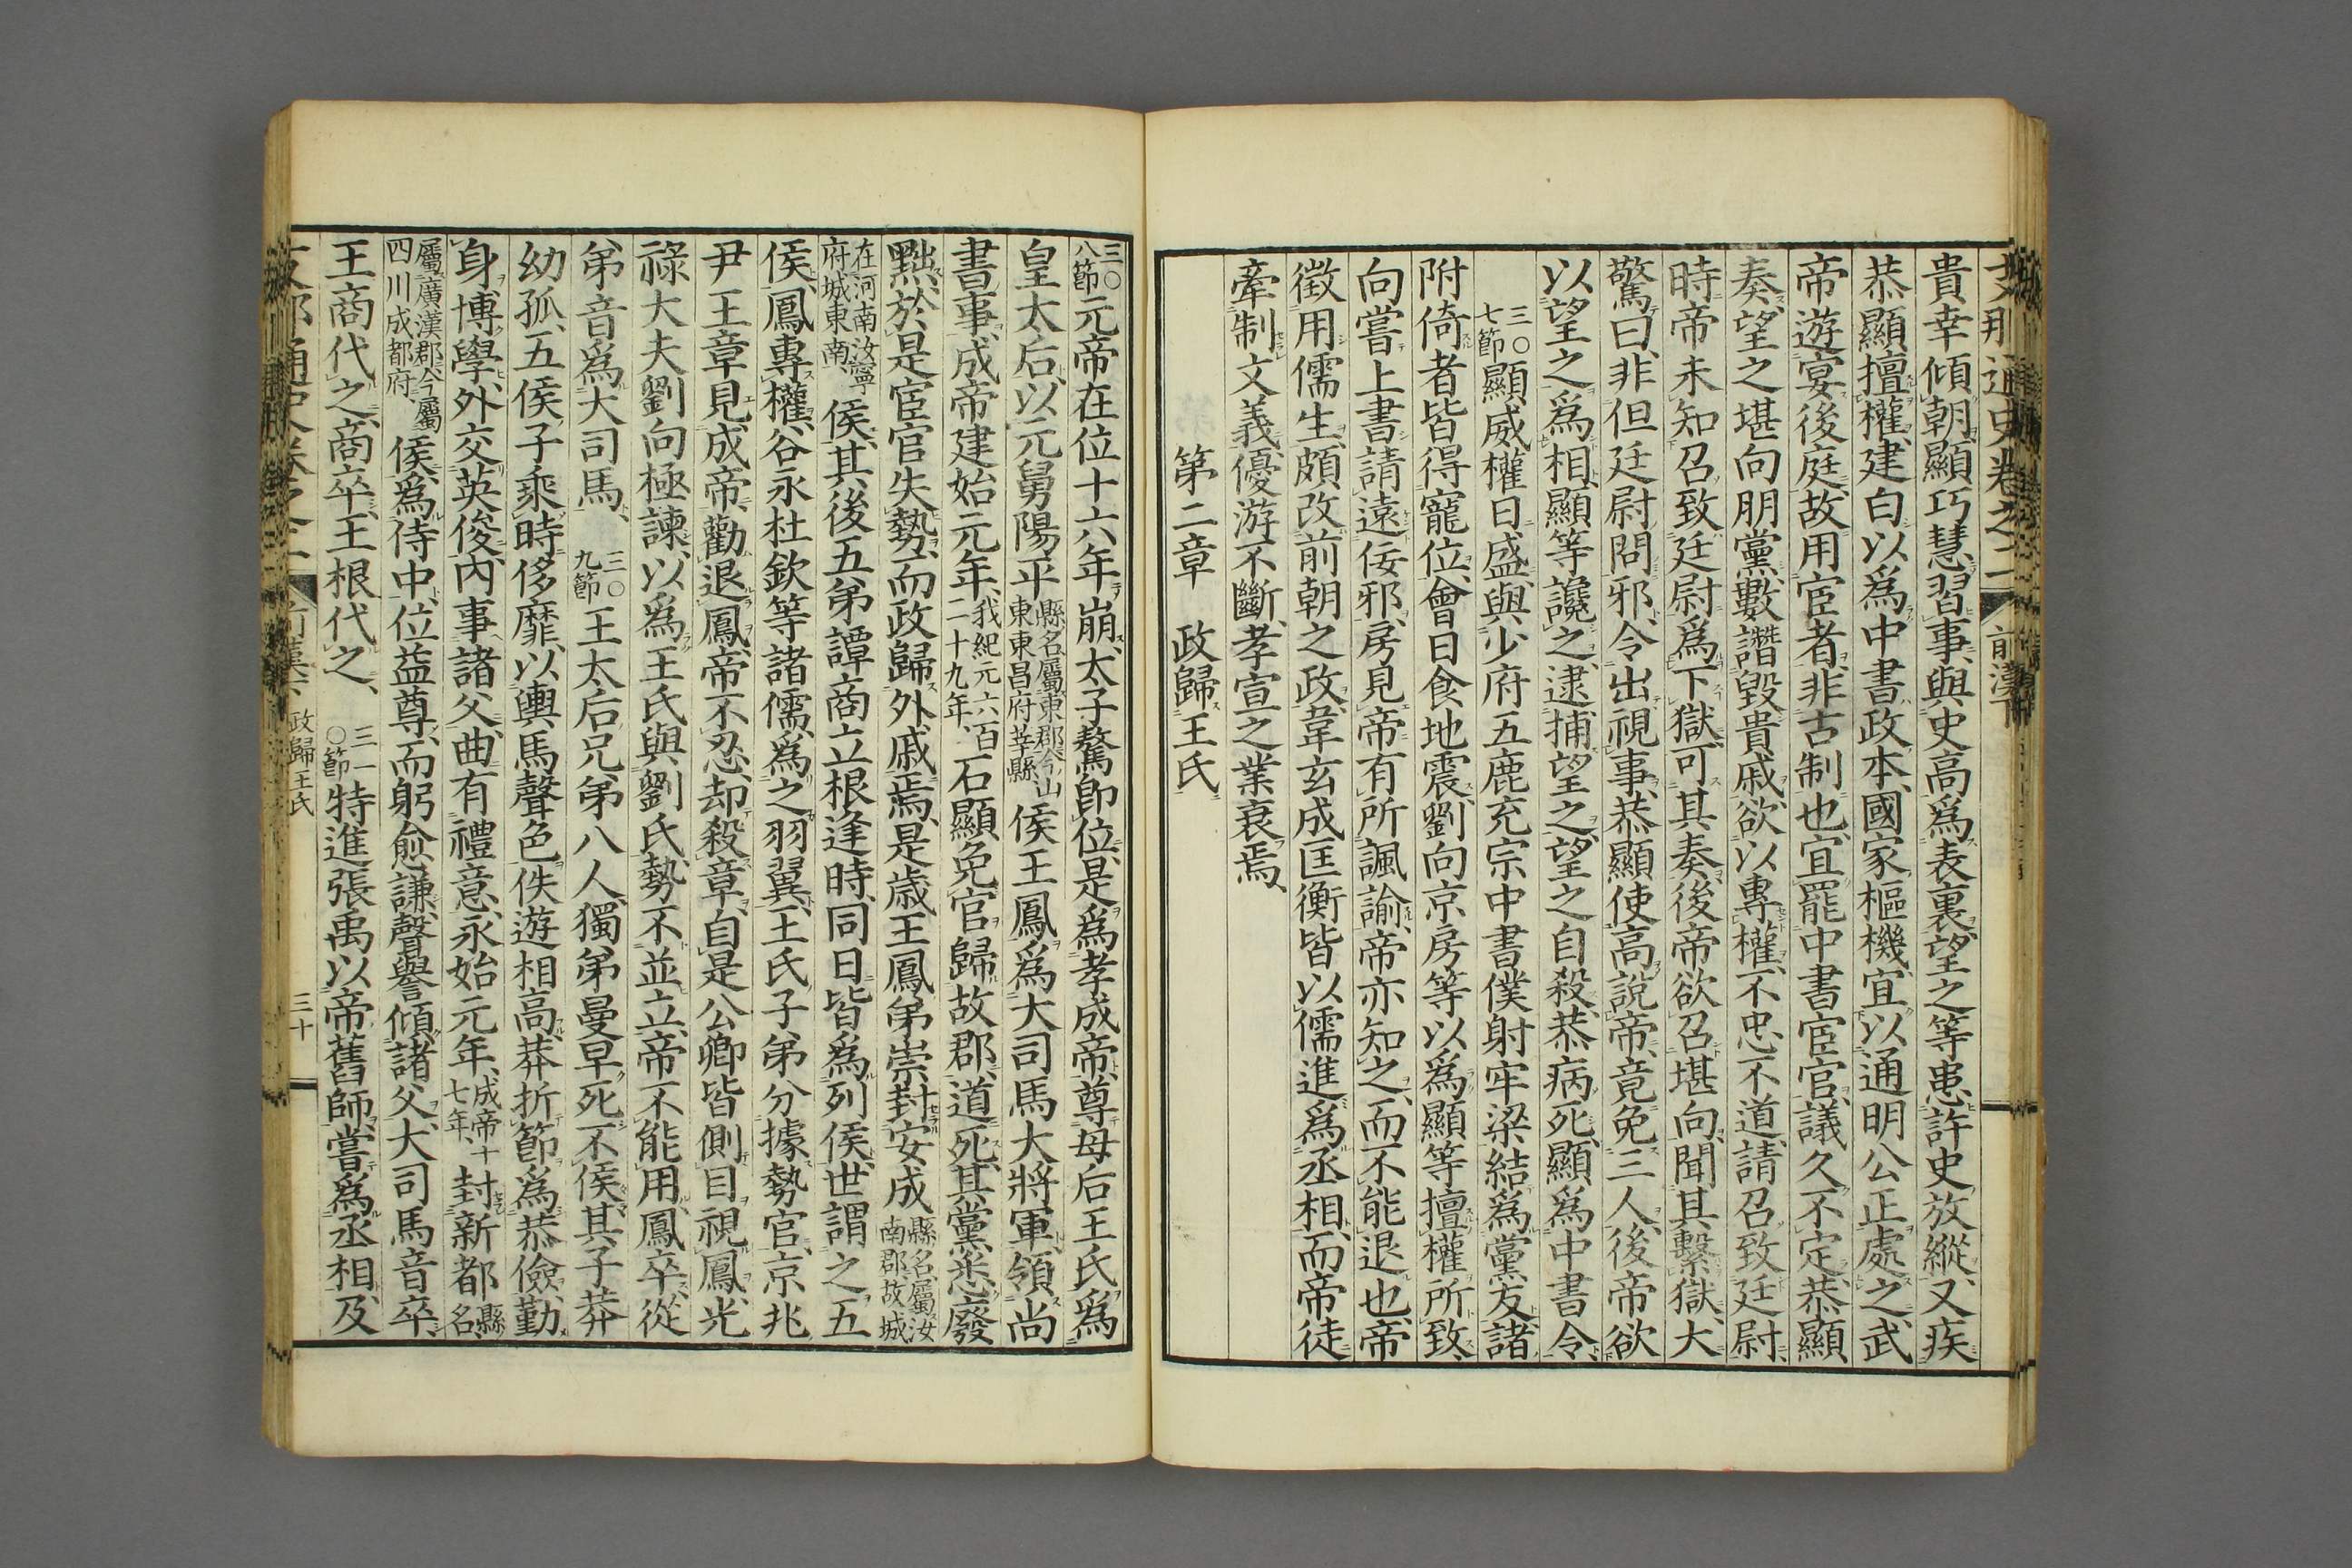 支那通史卷之二 前漢下
貴幸傾朝、顯巧慧習事、與史高爲表裏、望之等患許史放縱、又疾
恭顯擅權、建白以爲中書政本、國家樞機、宜以通明公正處之、武
帝遊宴後庭、故用宦者、非古制也、宜罷中書宦官、議久不定、恭顯
奏、望之堪向朋黨、數譖毀貴戚、欲以專權、不忠不道、請召致廷尉、
時帝未知召致廷尉爲下獄、可其奏、後帝欲召堪向、聞其繫獄、大
驚曰、非但廷尉問邪、令出視事、恭顯使高說帝、竟免三人、後帝欲
以望之爲相、顯等讒之、逮捕望之、望之自殺、恭病死、顯爲中書令、
三〇七節 顯威權日盛、與少府五鹿充宗中書僕射牢梁結爲黨友、諸
附倚者皆得寵位、會日食地震、劉向京房等以爲顯等擅權所致、
向嘗上書請遠佞邪、房見帝有所諷諭、帝亦知之、而不能退也、帝
徵用儒生、頗改前朝之政、韋玄成匡衡皆以儒進爲丞相、而帝徒
牽制文義、優游不斷、孝宣之業衰焉、
第二章 政歸王氏
三〇八節 元帝在位十六年崩、太子驁卽位、是爲孝成帝、尊母后王氏爲
皇太后、以元舅陽平縣名、屬東郡、今山東東昌府莘縣侯王鳳爲大司馬大將軍、領尚
書事、成帝建始元年、我紀元六百二十九年、石顯免官歸故郡、道死、其黨悉廢
黜、於是宦官失勢、而政歸外戚焉、是歲王鳳弟崇封安成縣名、屬汝南郡、故城
在河南汝寧府城東南、侯、其後五弟譚商立根逢時、同日皆爲列侯、世謂之五
侯、鳳專權、谷永杜欽等諸儒、爲之羽翼、王氏子弟分據勢官、京兆
尹王章見成帝、勸退鳳、帝不忍、却殺章、自是公卿皆側目視鳳、光
祿大夫劉向極諫、以爲王氏與劉氏勢不並立、帝不能用、鳳卒、從
弟音爲大司馬、 三〇九節 王太后兄弟八人、獨弟曼早死不侯、其子莽
幼孤、五侯子乘時侈靡、以輿馬聲色佚遊相高、莽折節爲恭儉、勤
身博學、外交英俊、內事諸父、曲有禮意、永始元年、成帝十七年、封新都縣名、
屬廣漢郡、今屬四川成都府侯、爲侍中、位益尊、而躬愈謙、聲譽傾諸父、大司馬音卒、
王商代之、商卒、王根代之、 三一〇節 特進張禹以帝舊師、嘗爲丞相、及
政歸王氏 三十